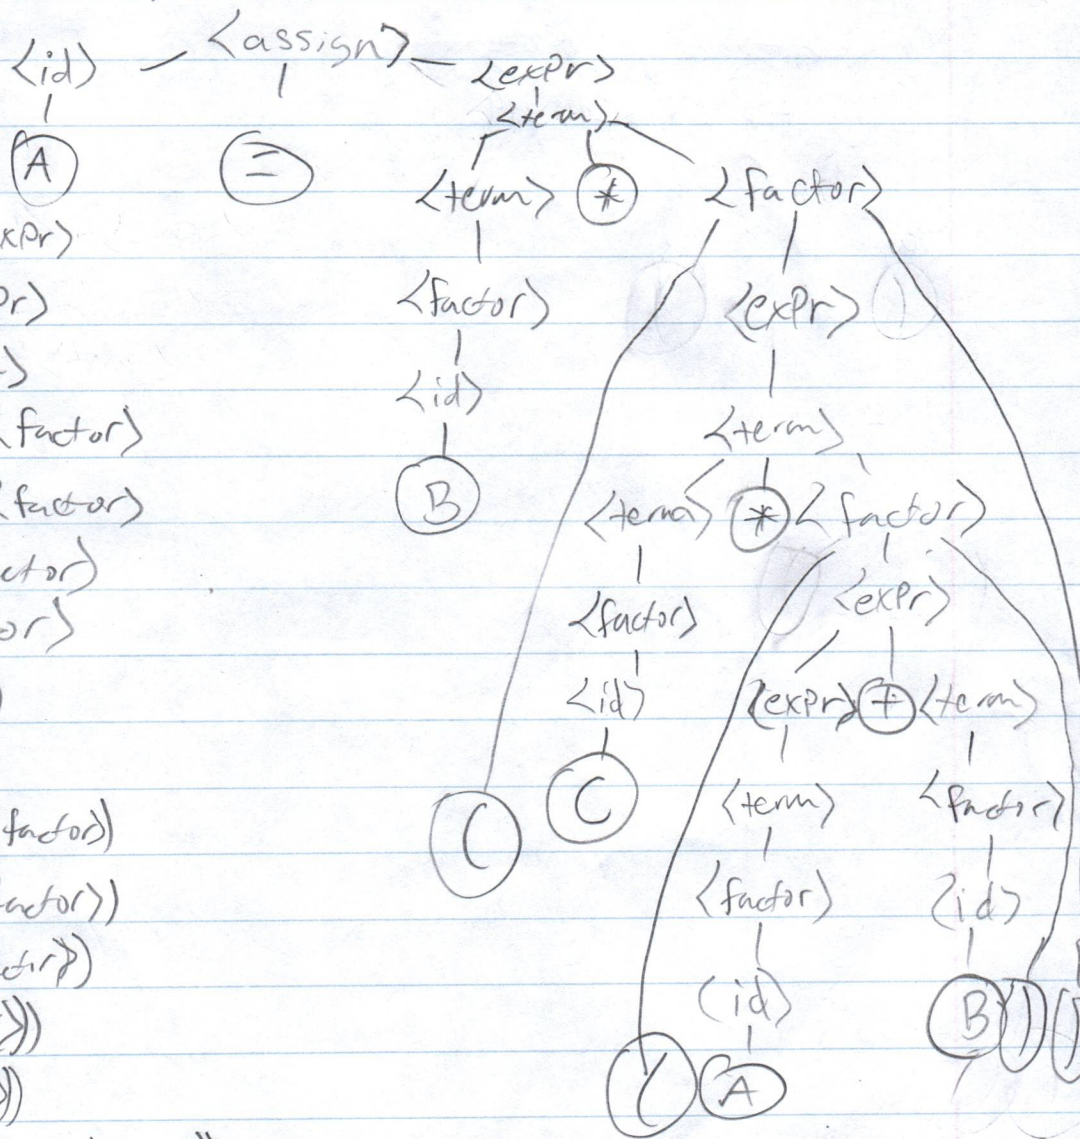 <id> <assign> <expr>
<term>
A = <term> * <factor>
xpr>
<factor> <expr>
<id>
<term>
factor>
B <term> * <factor>
factor>
<expr>
ctor>
<factor>
or>
<id> <expr> + <term>
C
( <term> <factor>
factor>)
<factor> <id>
actor>)
<id> B ) )
( A